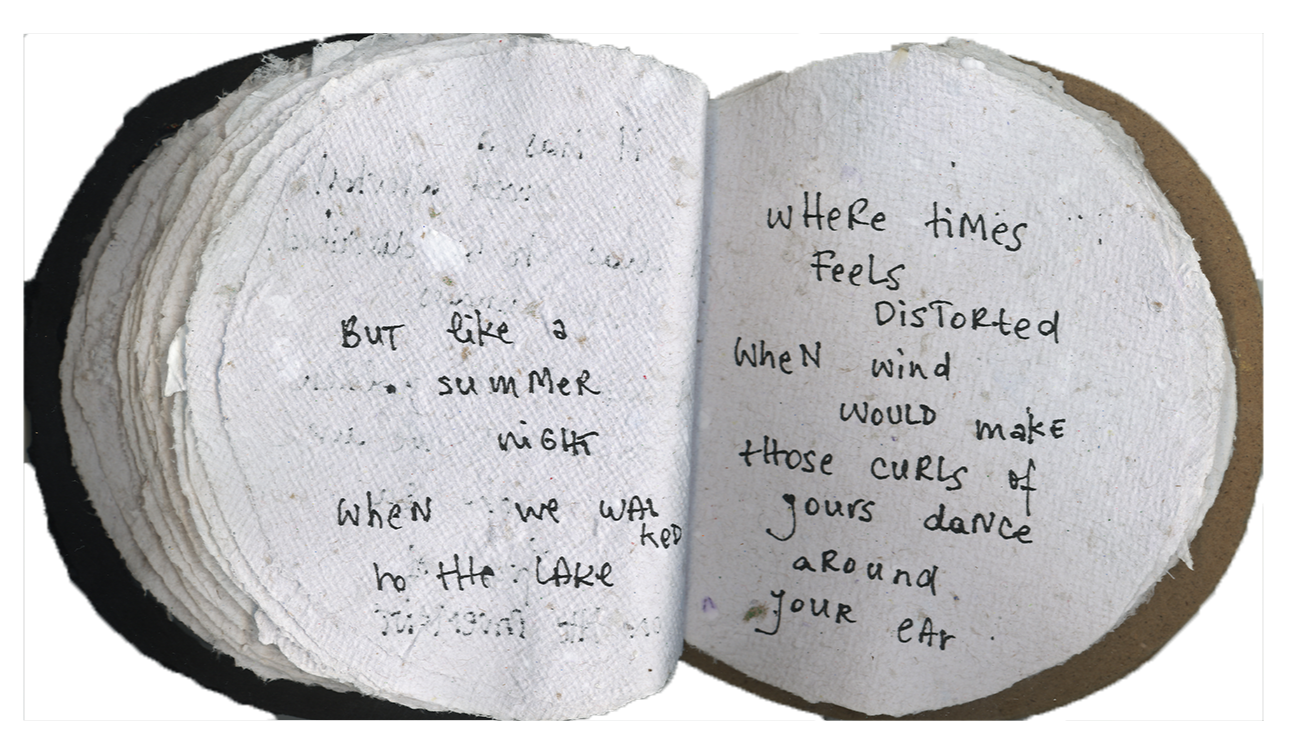 BUT like a
summeR
niGHT
wheN we WAL
keD
to tHe LAKe
wHeRe tiMes
FeeLs
DisToRted
wheN wind
WOULD makE
tHose cuRLs of
yours daNce
aRound
youR eAr.